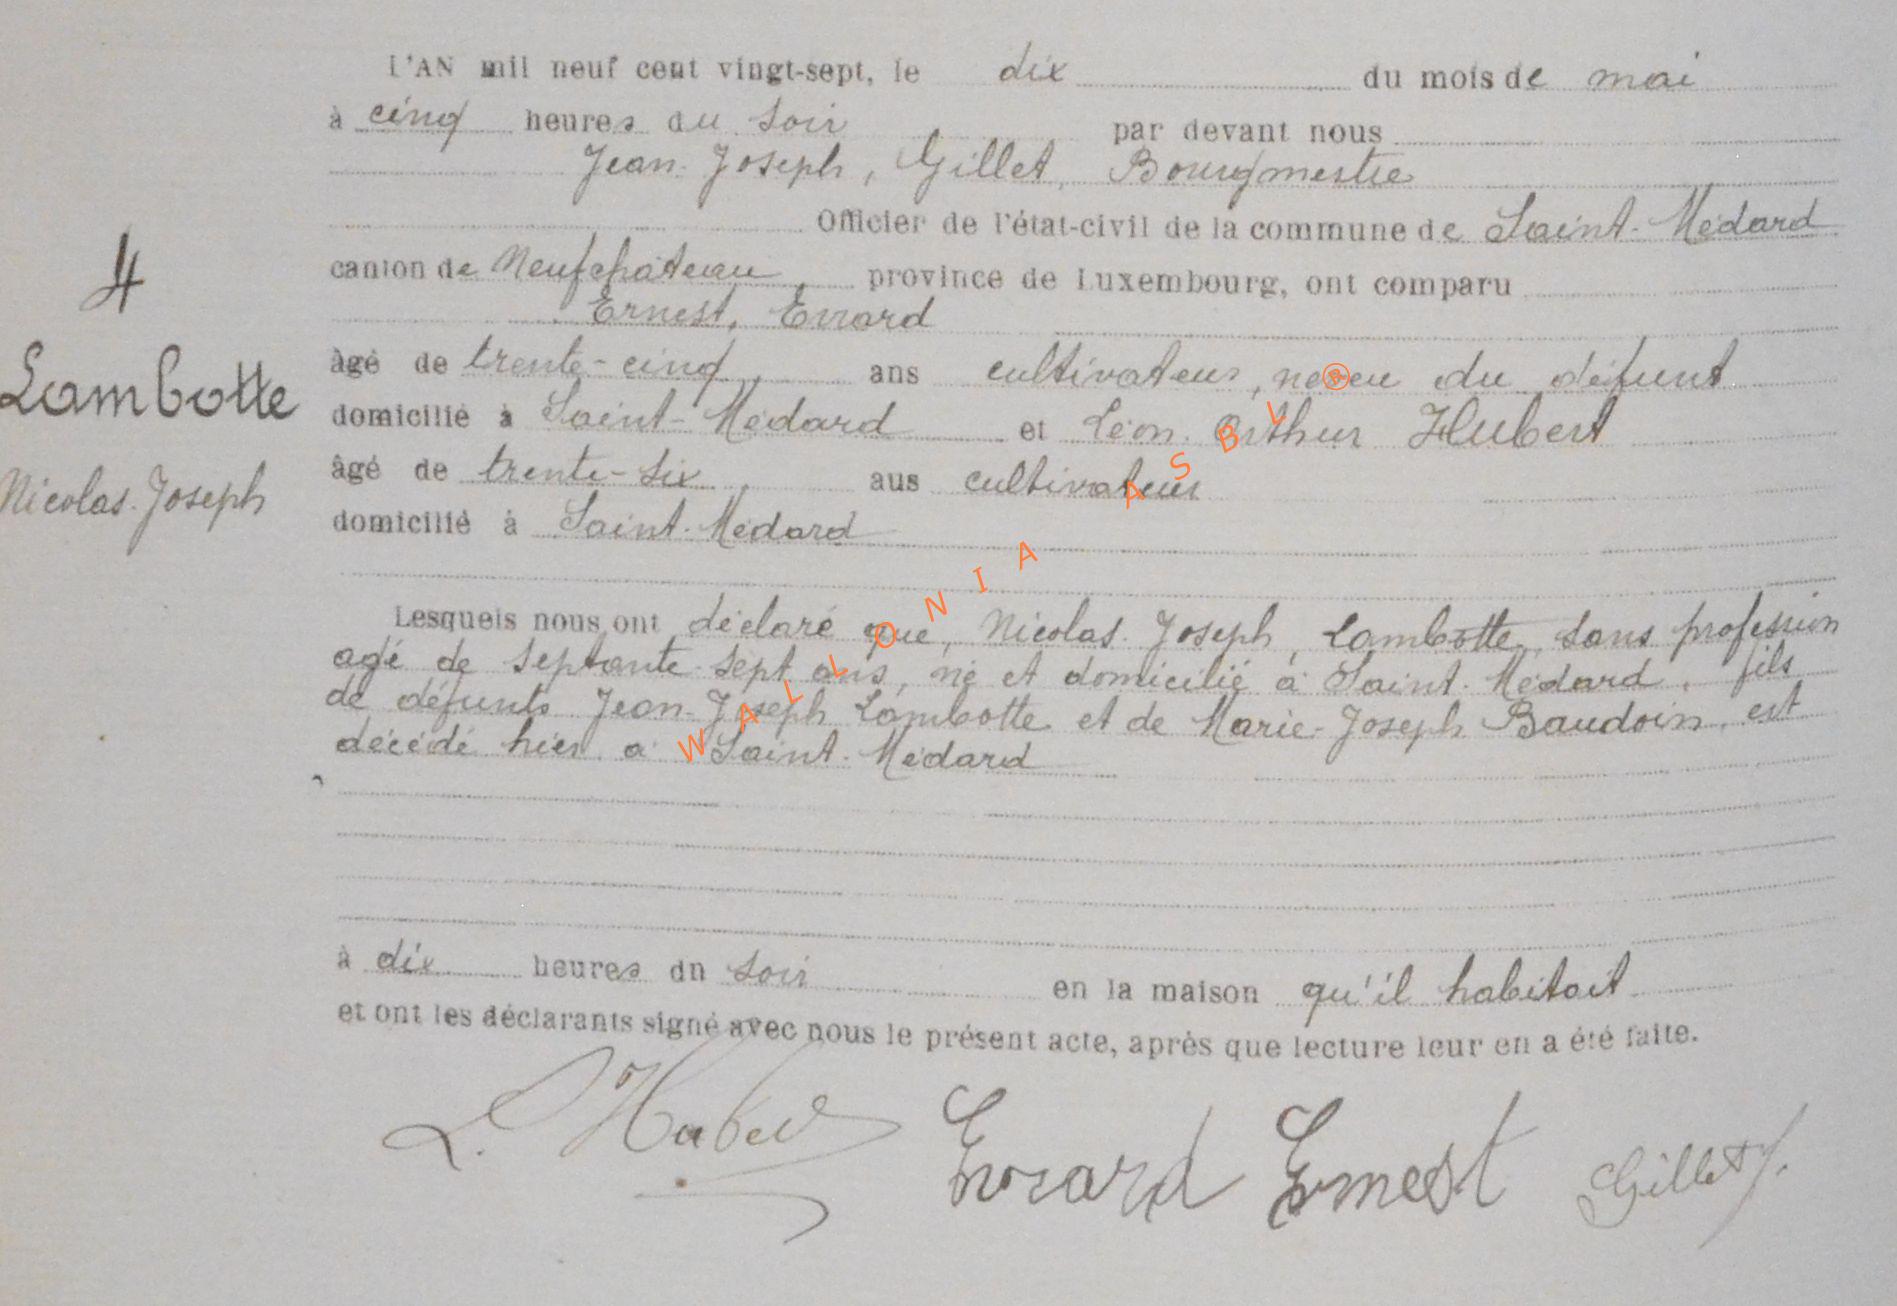 L'AN mil neuf cent vingt-sept, le dix du mois de mai
à cinq heures du soir par devant nous
Jean-Joseph, Gillet, Bourgmestre
Officier de l'état-civil de la commune de Saint-Médard
canton de Neufchâteau, province de Luxembourg, ont comparu
Ernest, Evrard
âgé de trente-cinq, ans cultivateur, neveu du défunt
domicilié à Saint-Médard et Léon Arthur Hubert
âgé de trente-six, ans cultivateur
domicilié à Saint-Médard
4
Lambotte
Nicolas-Joseph
Lesquels nous ont déclaré que, Nicolas-Joseph, Lambotte, sans profession
agé de septante-sept ans, né et domicilié à Saint-Médard, fils
de défunts Jean-Joseph Lambotte et de Marie-Joseph Baudoin, est
décédé hier à Saint-Médard
à dix heures du soir en la maison qu'il habitait
et ont les déclarants signé avec nous le présent acte, après que lecture leur en a été faite.
L. Hubert Evrard Ernest Gillet J.
WALLONIA ASBL ®